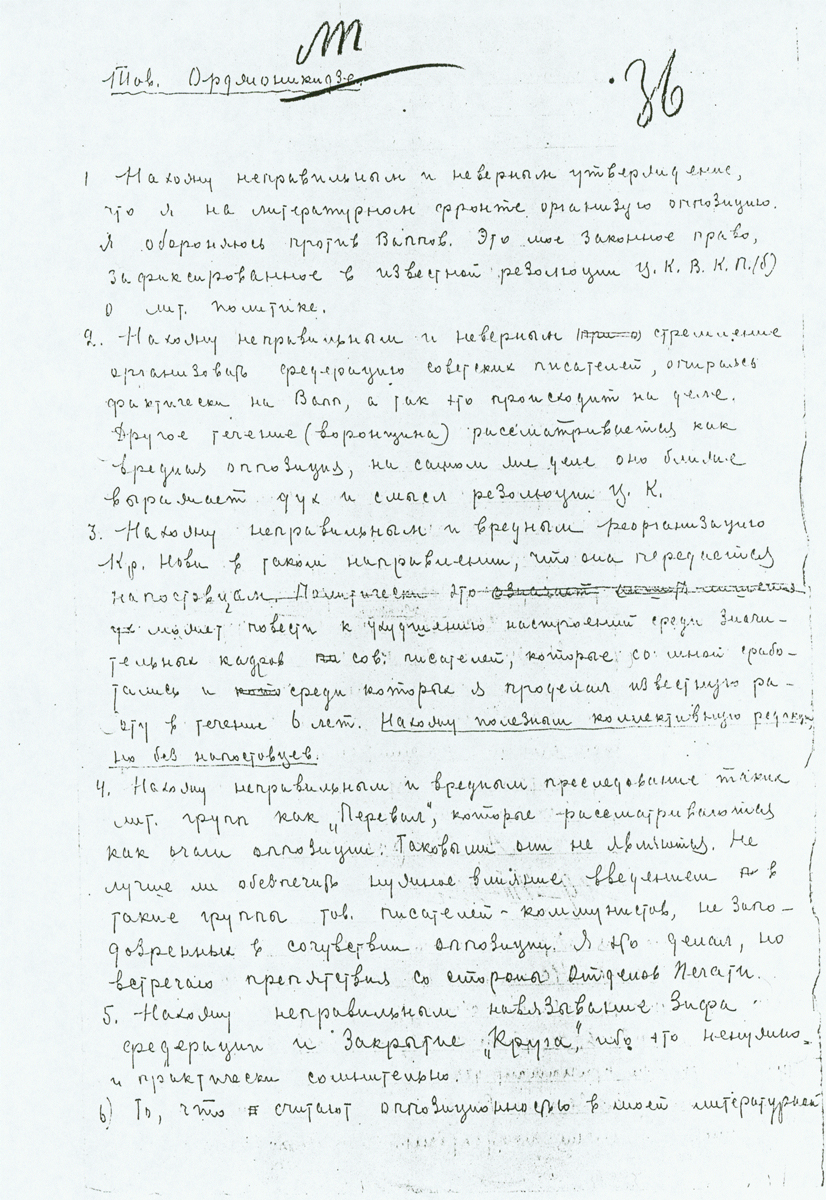 Тов. Орджоникидзе.
36
1 Нахожу неправильным и неверным утверждение,
что я на литературном фронте организую оппозицию.
Я обороняюсь против Ваппов. Это мое законное право,
зафиксированное в известной резолюции Ц. К. В. К. П. (б)
о лит. политике.
2. Нахожу неправильным и неверным стремление
организовать федерацию советских писателей, опираясь
фактически на Вапп, а так это происходит на деле.
Другое течение (воронщина) рассматривается как
вредная оппозиция, на самом же деле оно ближе
выражает дух и смысл резолюции Ц. К.
3. Нахожу неправильным и вредным реорганизацию
Кр. Нови в таком направлении, что она передается
напостовцам. Политически это означает
может повести к ухудшению настроений среди значи-
тельных кадров сов. писателей, которые со мной срабо-
тались и среди которых я проделал известную ра-
боту в течение 6 лет. Нахожу полезным коллективную редакцию
но без напостовцев.
4. Нахожу неправильным и вредным преследование таких
лит. групп как „Перевал“, которые рассматриваются
как очаги оппозиции. Таковыми они не являются. Не
лучше ли обеспечить нужное влияние введением в
такие группы тов. писателей-коммунистов, не запо-
дозренных в сочувствии оппозиции. Я это делал, но
встречаю препятствия со стороны Отделов Печати.
5. Нахожу неправильным навязывание Зифа
федерации и закрытие „Круга“, ибо это ненужно
и практически сомнительно.
6) То, что считают оппозиционностью в моей литературной